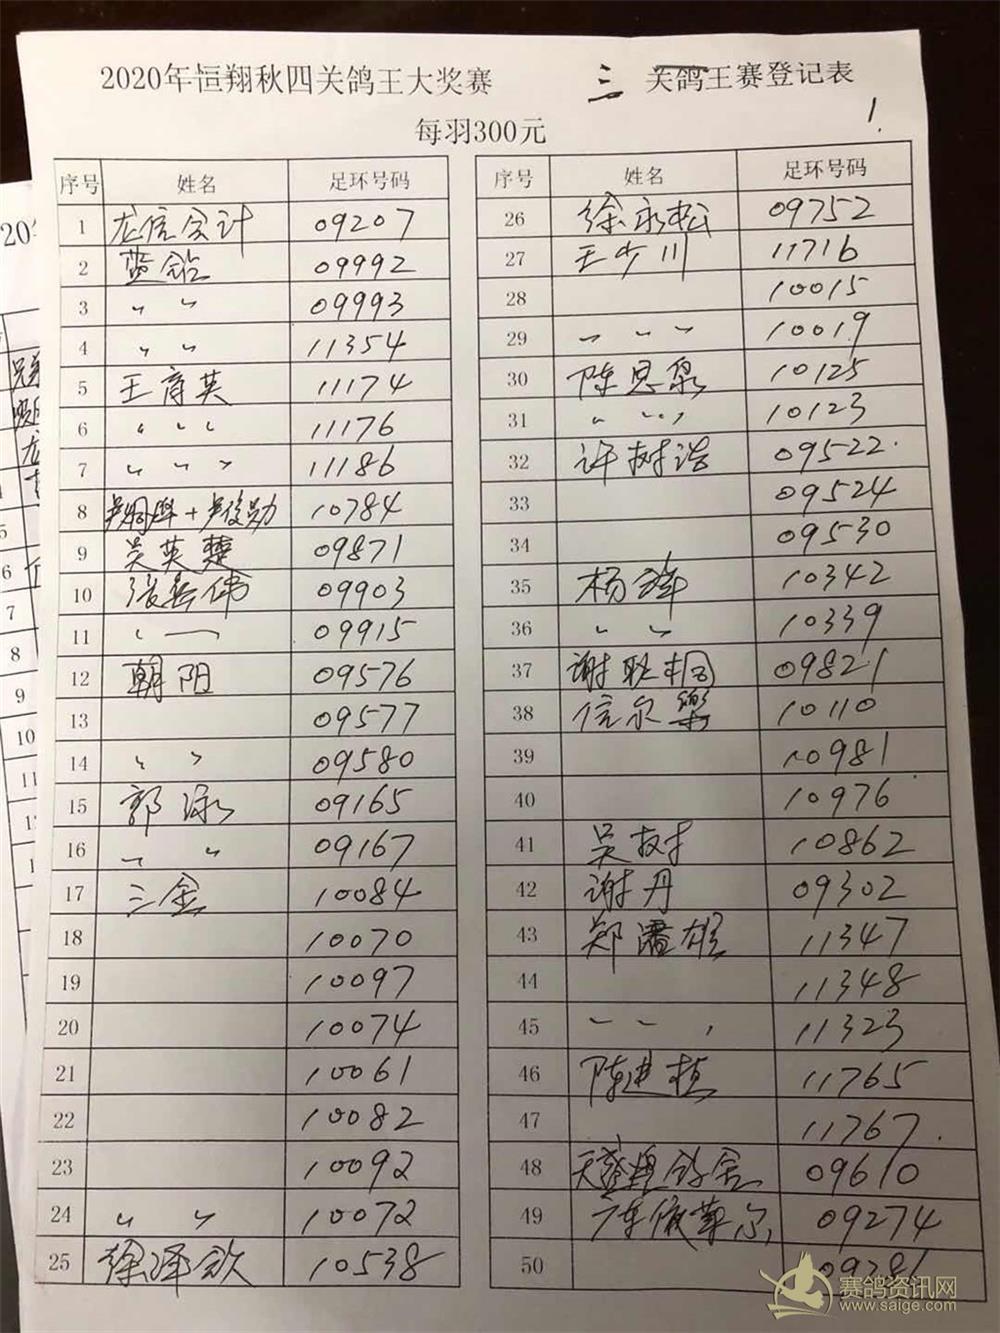 2020年恒翔秋四关鸽王大奖赛 三 关鸽王赛登记表
1.
每羽300元
序号 姓名 足环号码
1 龙信会计 09207
2 蓝钻 09992
3 〃 〃 09993
4 〃 〃 11354
5 王育英 11174
6 〃 〃 〃 11176
7 〃 〃 〃 11186
8 10784
9 吴英楚 09871
10 09903
11 09915
12 朝阳 09576
13 09577
14 〃 〃 09580
15 郭泳 09165
16 〃 〃 09167
17 三金 10084
18 10070
19 10097
20 10074
21 10061
22 10082
23 10092
24 〃 〃 10072
25 徐泽钦 10538
序号 姓名 足环号码
26 徐永松 09752
27 王少川 11716
28 10015
29 〃 〃 〃 10019
30 陈思泉 10125
31 〃 〃 〃 10123
32 许树浩 09522
33 09524
34 09530
35 杨 10342
36 〃 〃 10339
37 谢 09821
38 信尔乐 10110
39 10981
40 10976
41 吴树 10862
42 谢丹 09302
43 郑 雄 11347
44 11348
45 〃 〃 〃 11323
46 陈建植 11765
47 11767
48 鸽舍 09610
49 09274
50 09281
赛鸽资讯网
www.saige.com